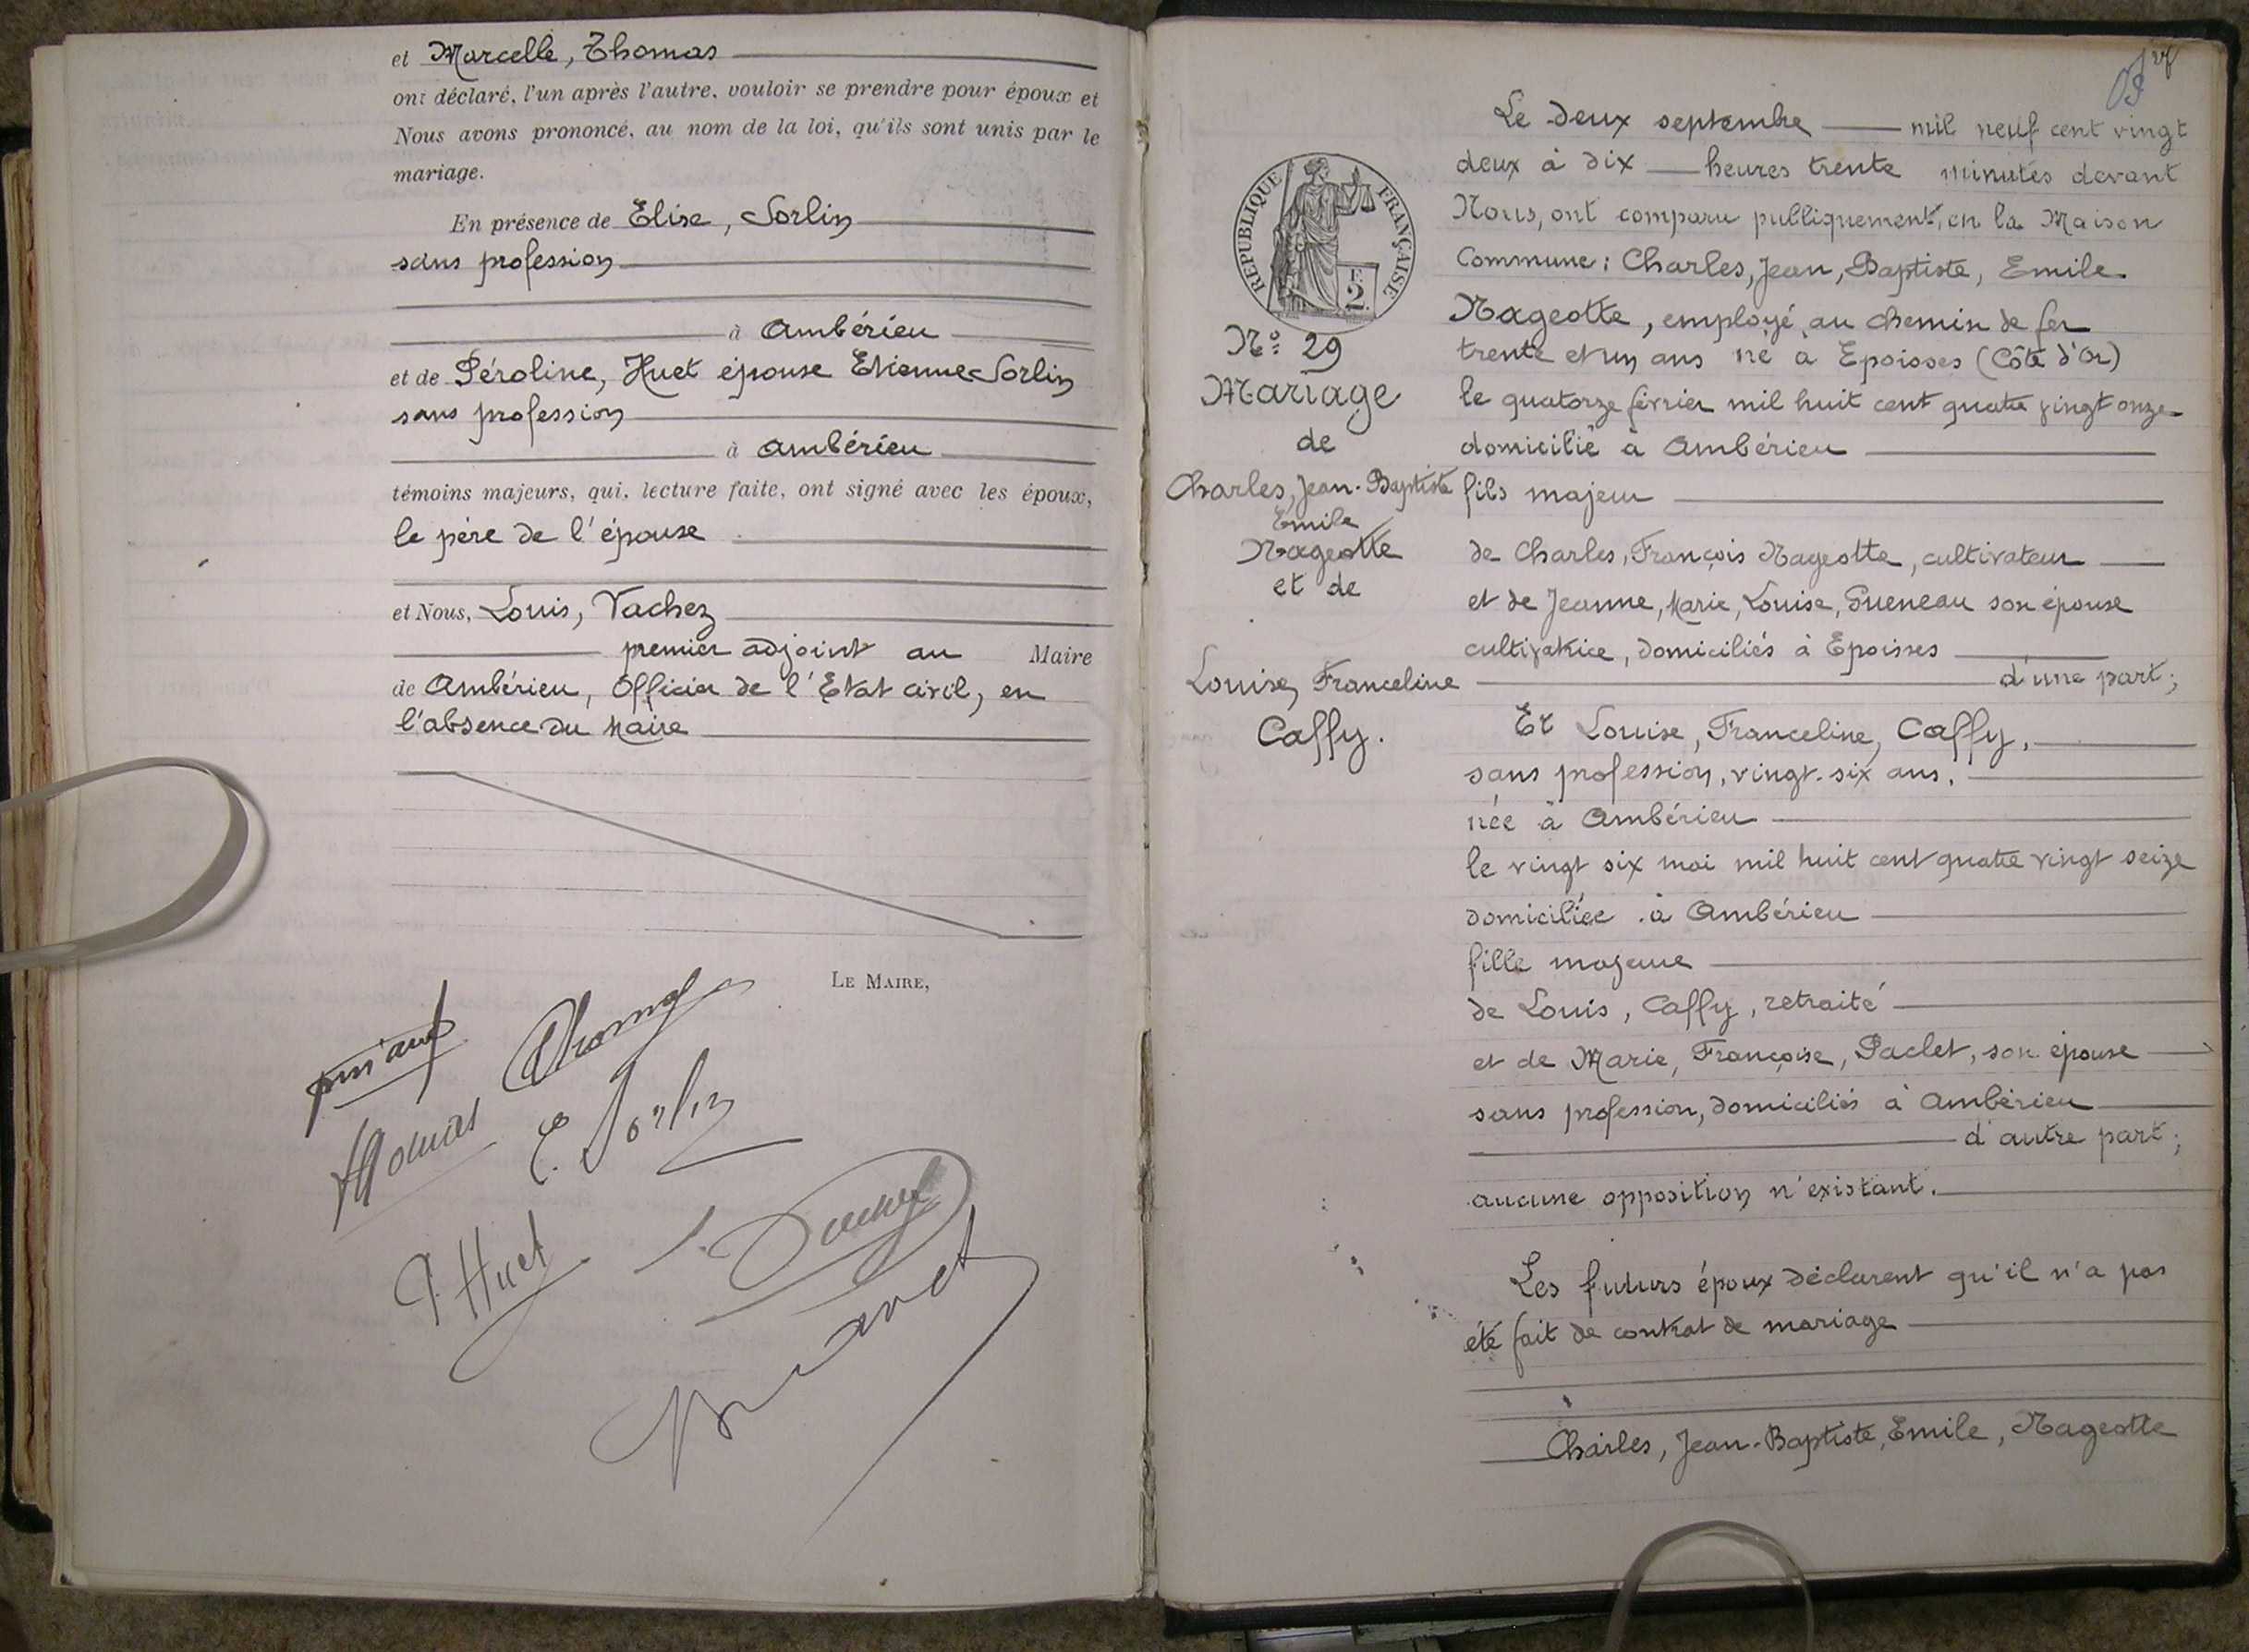 et Marcelle, Thomas
ont déclaré, l'un après l'autre, vouloir se prendre pour époux et
Nous avons prononcé, au nom de la loi, qu'ils sont unis par le
mariage.
En présence de Elise, Sorlin
sans profession
à Ambérieu
et de Péroline, Huet épouse Etienne Sorlin
sans profession
à Ambérieu
témoins majeurs, qui, lecture faite, ont signé avec les époux,
le père de l'épouse
et Nous, Louis, Vachez
premier adjoint au Maire
de Ambérieu, Officier de l'Etat civil, en
l'absence du Maire
LE MAIRE,
Thomas
E. Sorlin
P. Huet
Le deux septembre mil neuf cent vingt
deux à dix heures trente minutes devant
Nous, ont comparu publiquement, en la Maison
Commune : Charles, Jean, Baptiste, Emile
Nageotte, employé au chemin de fer
trente et un ans né à Epoisses (Côte d'Or)
le quatorze février mil huit cent quatre vingt onze
domicilié à Ambérieu
fils majeur
de Charles, François Nageotte, cultivateur
et de Jeanne, Marie, Louise, Gueneau son épouse
cultivatrice, domiciliés à Epoisses
d'une part;
Et Louise, Franceline, Caffy,
sans profession, vingt-six ans,
née à Ambérieu
le vingt six mai mil huit cent quatre vingt seize
domiciliée à Ambérieu
fille majeure
de Louis, Caffy, retraité
et de Marie, Françoise, Paclet, son épouse
sans profession, domiciliés à Ambérieu
d'autre part;
aucune opposition n'existant.
Les futurs époux déclarent qu'il n'a pas
été fait de contrat de mariage
Charles, Jean-Baptiste, Emile, Nageotte
RÉPUBLIQUE FRANÇAISE
F.
2
No: 29
Mariage
de
Charles, Jean-Baptiste
Emile
Nageotte
et de
Louise, Franceline
Caffy.